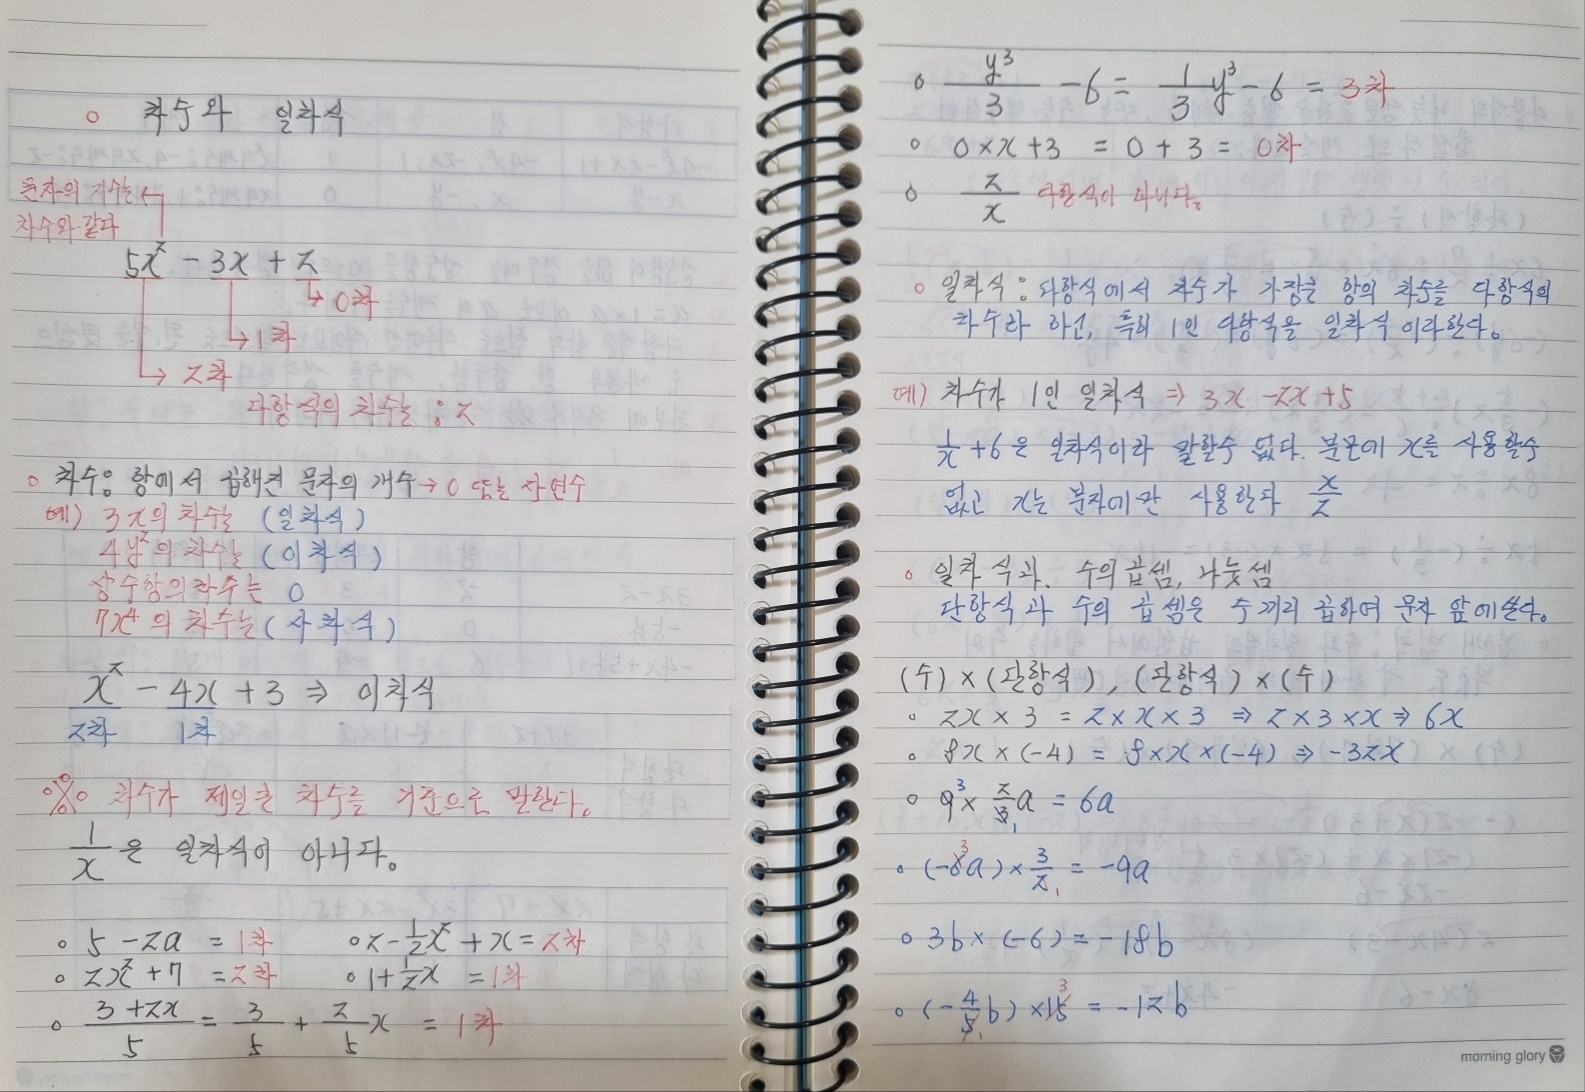 ○ 차수와 일차식
문자의 지수는
차수와 같다
5x² - 3x + 2
→ 0차
→ 1차
→ 2차
다항식의 차수는 : 2
○ 차수: 항에서 곱해진 문자의 개수 → 0 또는 자연수
예) 3x의 차수는 (일차식)
4y²의 차수는 (이차식)
상수항의 차수는 0
7x⁴의 차수는 (사차식)
x² - 4x + 3 ⇒ 이차식
2차 1차
※ 차수가 제일 큰 차수를 기준으로 말한다.
1/x 은 일차식이 아니다.
○ 5 - 2a = 1차 ○ 2 - 1/2 x² + x = 2차
○ 2x² + 7 = 2차 ○ 1 + 1/2 x = 1차
○ (3 + 2x)/5 = 3/5 + 2/5 x = 1차
○ y³/3 - 6 = 1/3 y³ - 6 = 3차
○ 0×x+3 = 0+3 = 0차
○ 2/x 다항식이 아니다.
○ 일차식 : 다항식에서 차수가 가장큰 항의 차수를 다항식의
차수라 하고, 특히 1인 다항식을 일차식 이라한다.
예) 차수가 1인 일차식 ⇒ 3x - 2x + 5
1/x + 6 은 일차식이라 말할수 없다. 분모에 x를 사용할수
없고 x는 분자에만 사용한다 x/2
○ 일차식과. 수의 곱셈, 나눗셈
단항식과 수의 곱셈은 수끼리 곱하여 문자 앞에쓴다.
(수) × (단항식), (단항식) × (수)
○ 2x × 3 = 2 × x × 3 ⇒ 2 × 3 × x ⇒ 6x
○ 8x × (-4) = 8 × x × (-4) ⇒ -32x
○ 9 3 × 2/3 1 a = 6a
○ (-6 3 a) × 3/2 1 = -9a
○ 3b × (-6) = -18b
○ (-4/5 1 b) × 15 3 = -12b
morning glory